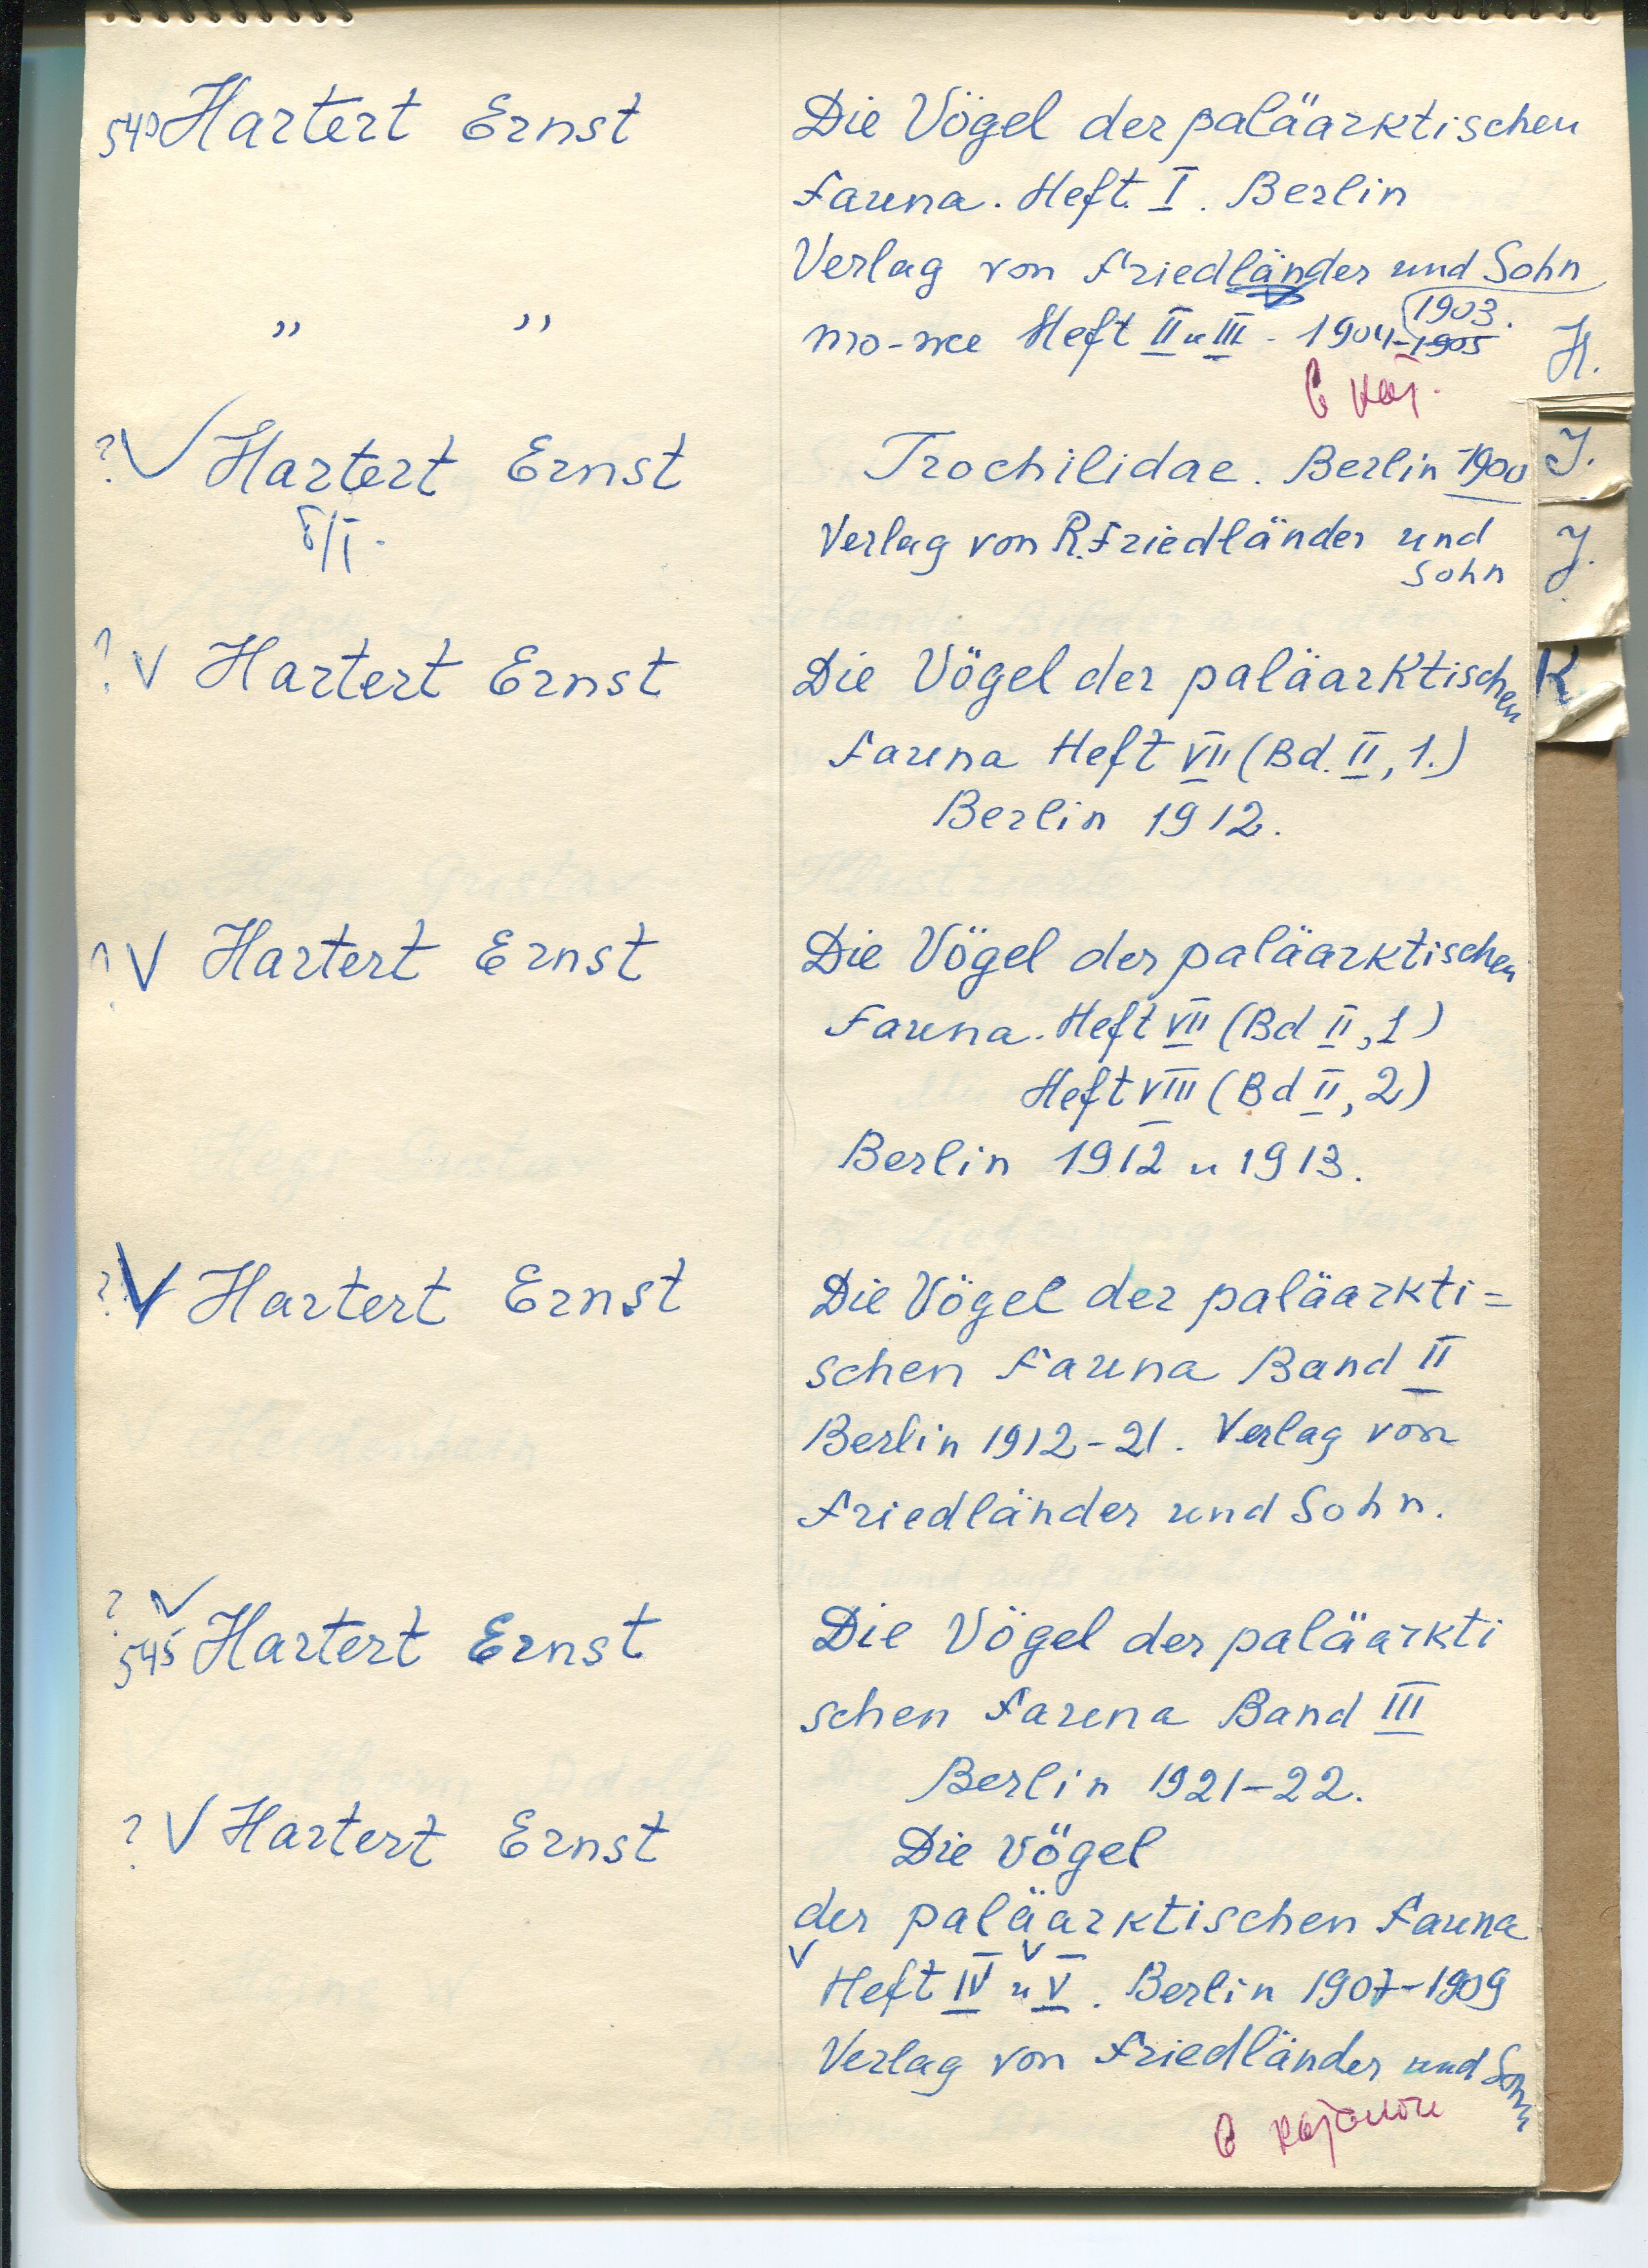 540 Hartert Ernst Die Vögel der paläarktischen
Fauna. Heft. I. Berlin
Verlag von Friedländer und Sohn
1903.
" " то-же Heft II и III - 1904-1905
H.
? V Hartert Ernst Trochilidae. Berlin 1900
J.
б/г. Verlag von R. Friedländer und
Sohn
J.
? V Hartert Ernst Die Vögel der paläarktischen
K
Fauna Heft VII (Bd. II, 1.)
Berlin 1912.
? V Hartert Ernst Die Vögel der paläarktischen
Fauna. Heft VII (Bd II, 1)
Heft VIII (Bd II, 2)
Berlin 1912 и 1913.
? V Hartert Ernst Die Vögel der paläarkti=
schen Fauna Band II
Berlin 1912-21. Verlag von
Friedländer und Sohn.
? V
545 Hartert Ernst Die Vögel der paläarkti
schen Fauna Band III
Berlin 1921-22.
? V Hartert Ernst Die Vögel
der paläarktischen Fauna
V V
Heft IV и V. Berlin 1907-1909
Verlag von Friedländer und Sohn